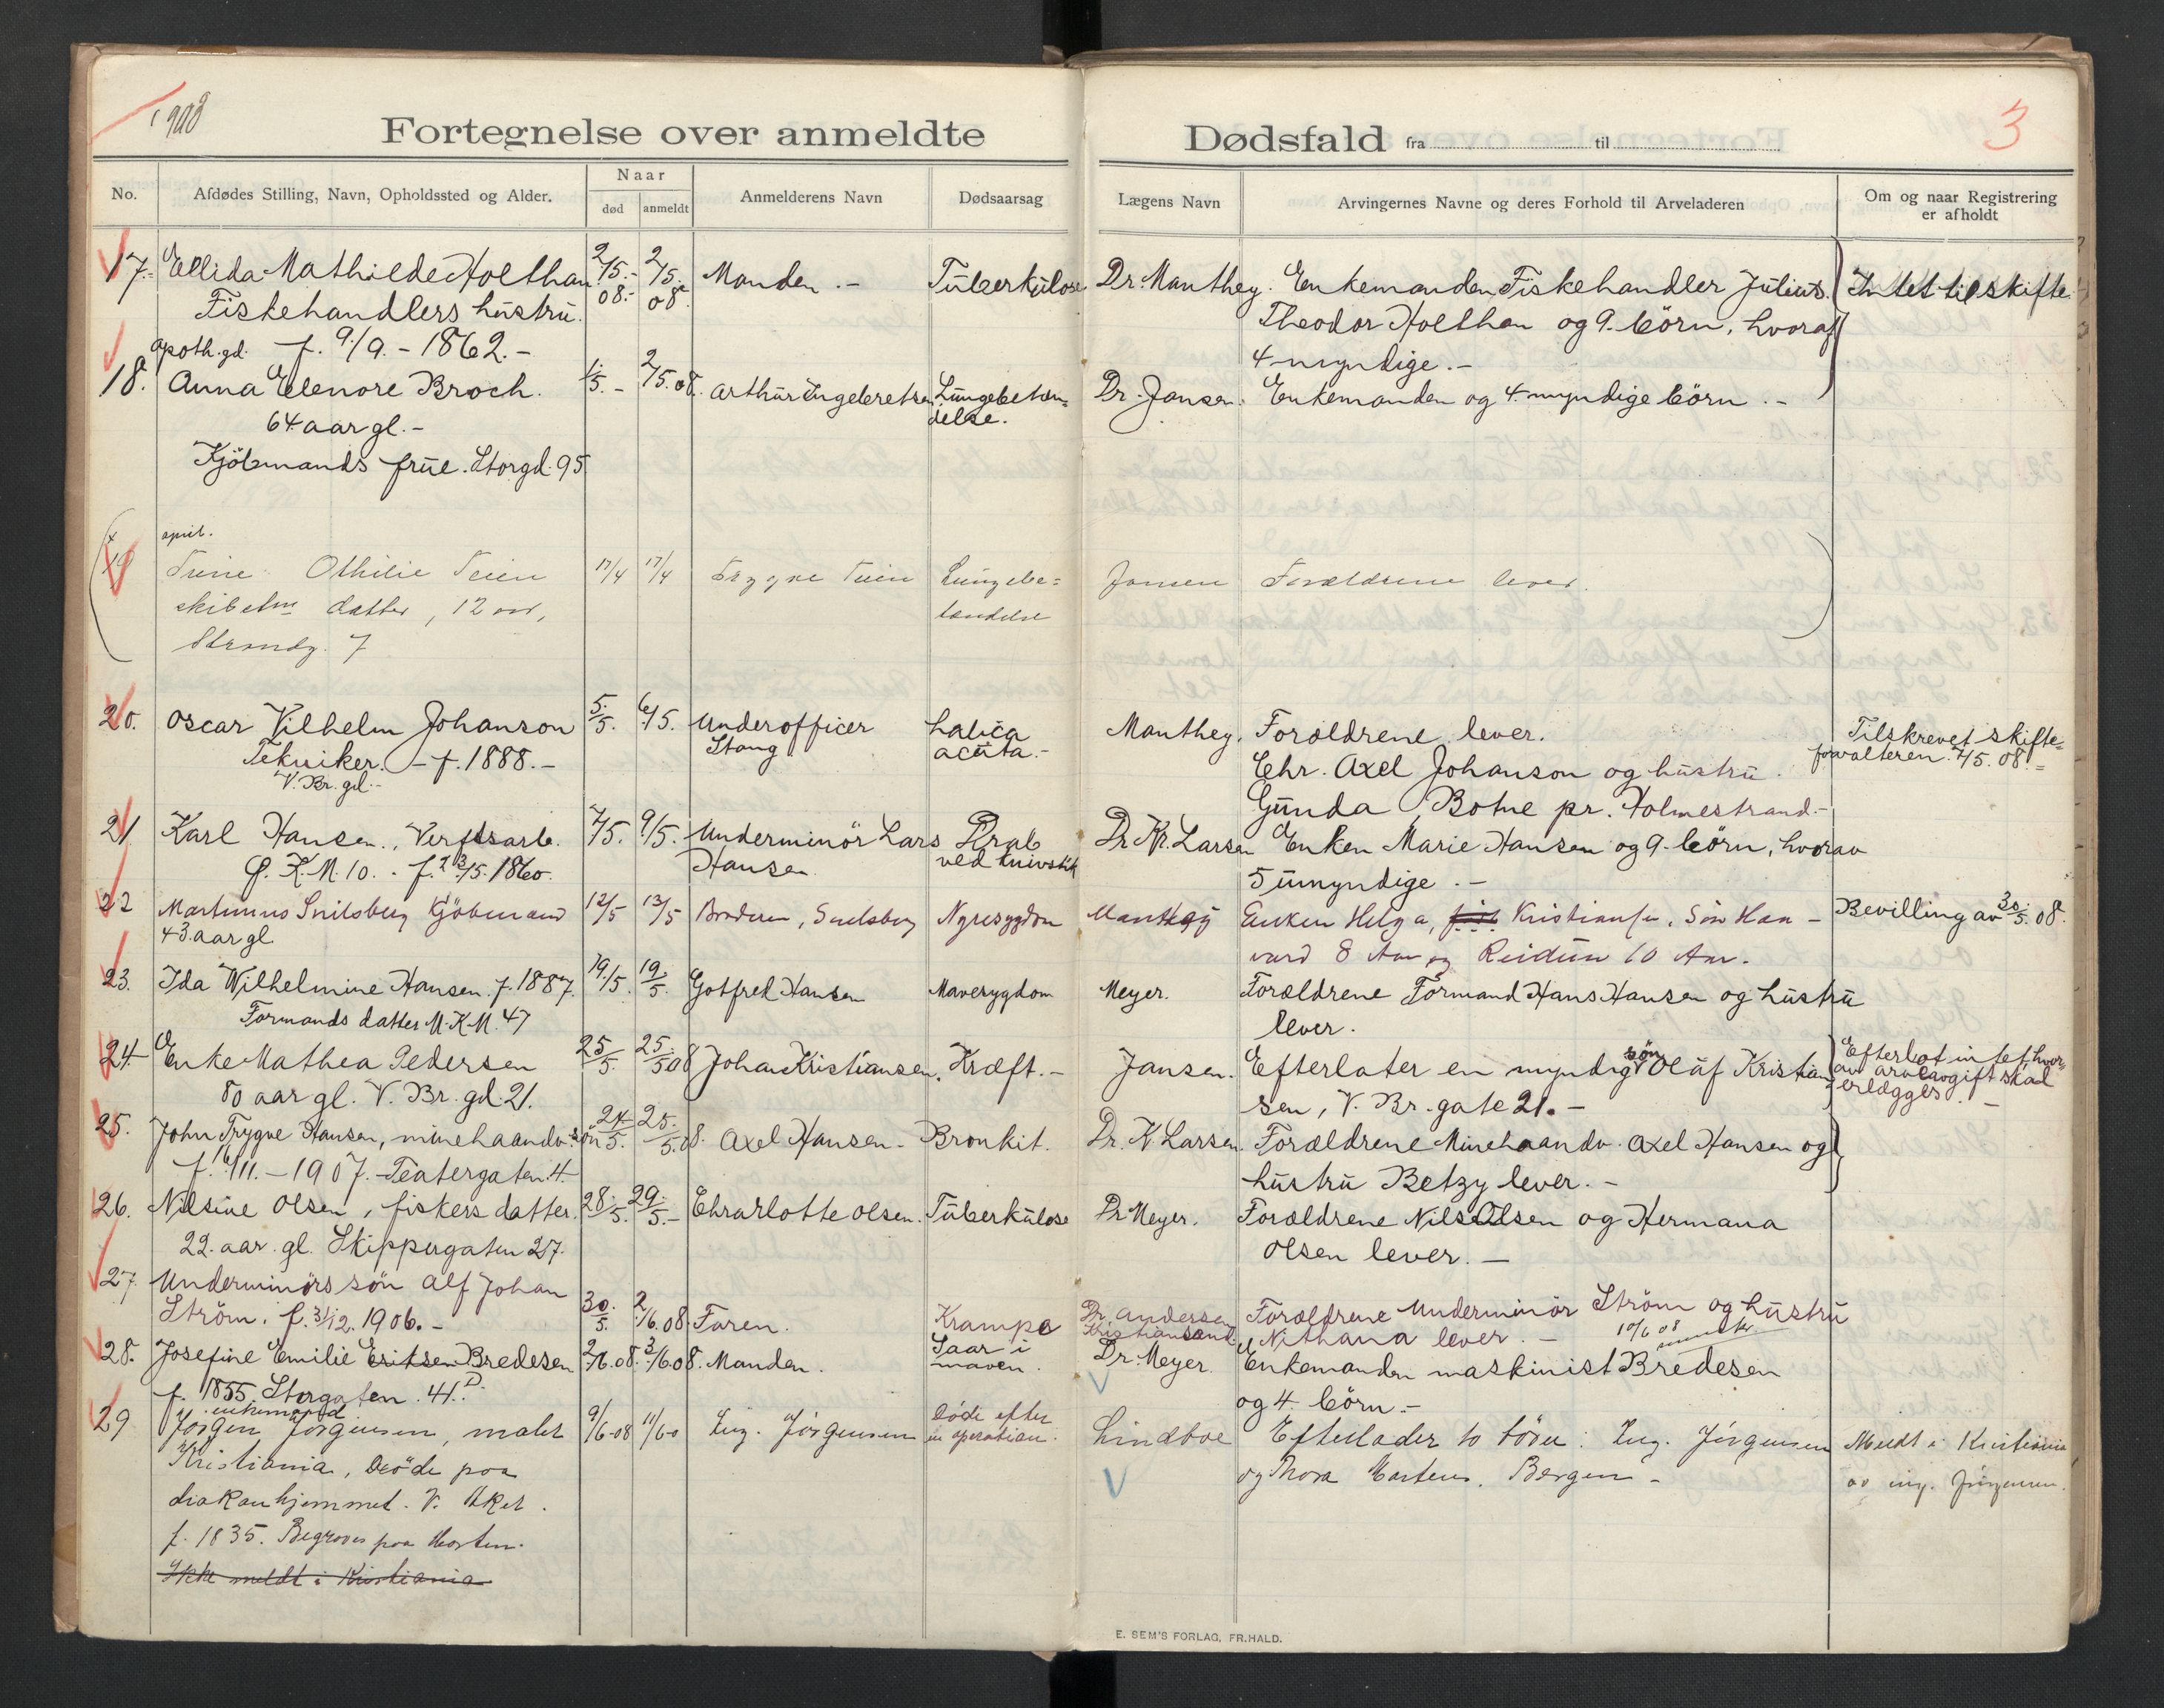 1908
3
Fortegnelse over anmeldte Dødsfald fra til
No.
Afdødes Stilling, Navn, Opholdssted og Alder.
Naar
død
anmeldt
Anmelderens Navn
Dødsaarsag
Lægens Navn
Arvingernes Navne og deres Forhold til Arveladeren
Om og naar Registrering
er afholdt
17. Ellida Mathilde Holthan 2/5.- 2/5. Manden.- Tüberkülose Dr. Manthey. Enkemanden Fiskehandler Julius Intet til skifte.
Fiskehandlers hüstrü. 08.- 08. Theodor Holthan og 9. börn, hvoraf
apoth.gd. f. 9/9.-1862.- 4 myndige.-
18. Anna Elenore Broch. 1/5.- 2/5.08. Arthür Engebretsen Lüngebetæn= Dr. Jansen. Enkemanden og 4 myndige börn.-
64 aar gl.- delse.
Kjöbmands frue. Storgd. 95
april.
19 Trine Othilie Teien 17/4 17/4 Trygve Teien Lungebe= Jansen Forældrene lever.
skibstm datter, 12 aar, tændelse
Strandg. 7
20. Oscar Vilhelm Johanson 5/5. 6/5. Underofficer halica Manthey. Forældrene lever. Tilskrevet skifte=
Tekniker.-f. 1888.- Stang. acüta.- Chr. Axel Johanson og hüstrü. forvalteren 7/5.08.=
V. Br. gd.- Günda, Botne pr. Holmestrand.-
21. Karl Hansen., Verftsarb. 7/5. 9/5. Underminör Lars Drab Dr Kr. Larsen Enken Marie Hansen og 9. börn, hvorav
Ø. K. M. 10. . f. 23/5. 1860. Hansen. ved knivstik 5 ümyndige.-
22 Martinius Snilsberg Kjöbmand 12/5 13/5 Broderen, Snilsberg Nyresygdom Manthey Enken Helga, Kristians., Sön Haa- Bevilling av 30/5.08.
43 aar gl vard 8 Aar og Reidün 10 Aar.
23. Ida Wilhelmine Hansen. f. 1887. 19/5. 19/5. Gotfred Hansen Mavesygdom Meyer. Forældrene Formand Hans Hansen og hüstrü
Formands datter M. K. M. 47 lever.
24. Enke Mathea Pedersen 25/5. 25/5 08 Johan Kristiansen. Kræft.- Jansen. Efterlater en myndig sön Olaf Kristian Efterlot intet, hvor=
80 aar gl. V. Br. gd. 21. sen, V. Br. gate 21.- av arveavgift skal
erlægges.-
25. John Trygve Hansen, minehaandv. sön 24/5. 25/5.08. Axel Hansen- Bronkit. Dr. K Larsen. Forældrene Minehaandv. Axel Hansen og
f. /11.-1907.-Teatergaten 4. hüstrü Betzy lever.-
26. Nilsine Olsen, fiskers datter. 28/5. 29/5.- Chrarlotte Olsen. Tüberkülose Dr Meyer. Forældrene Nils Olsen og Hermana
22 aar. gl. Skippergaten 27. Olsen lever.-
27. Underminörs sön Alf Johan
Ström. f. 31/12. 1906.- 30/5. 2/6.08. Faren. Krampe Dr. Andersen Forældrene Underminör Ström og hüstrü
Kristiansand. Nithana lever.- 10/6 08
28. Josefine Emilie Eriksen Bredesen 2/6.08. 3/6.08. Manden. Saar i Dr. Meyer. Enkemanden maskinist Bredesen
maven.
f. 1855 Storgaten. 41.D. og 4. börn.-
enkemand
29 Jörgen Jörgensen, maler 9/6-08 11/6-0 Ing. Jörgensen Döde efter Lindboe Efterlader to börn: Ing. Jörgensen Meldt i Kristiania
Kristiania, Döde paa en operation. og Thora Martens. Bergen- av ing. Jörgensen.
diakonhjemmet. V. Aker.
f. 1835. Begraves paa Horten.
Ikke meldt i Kristiania
E. SEM'S FORLAG, FR.HALD.